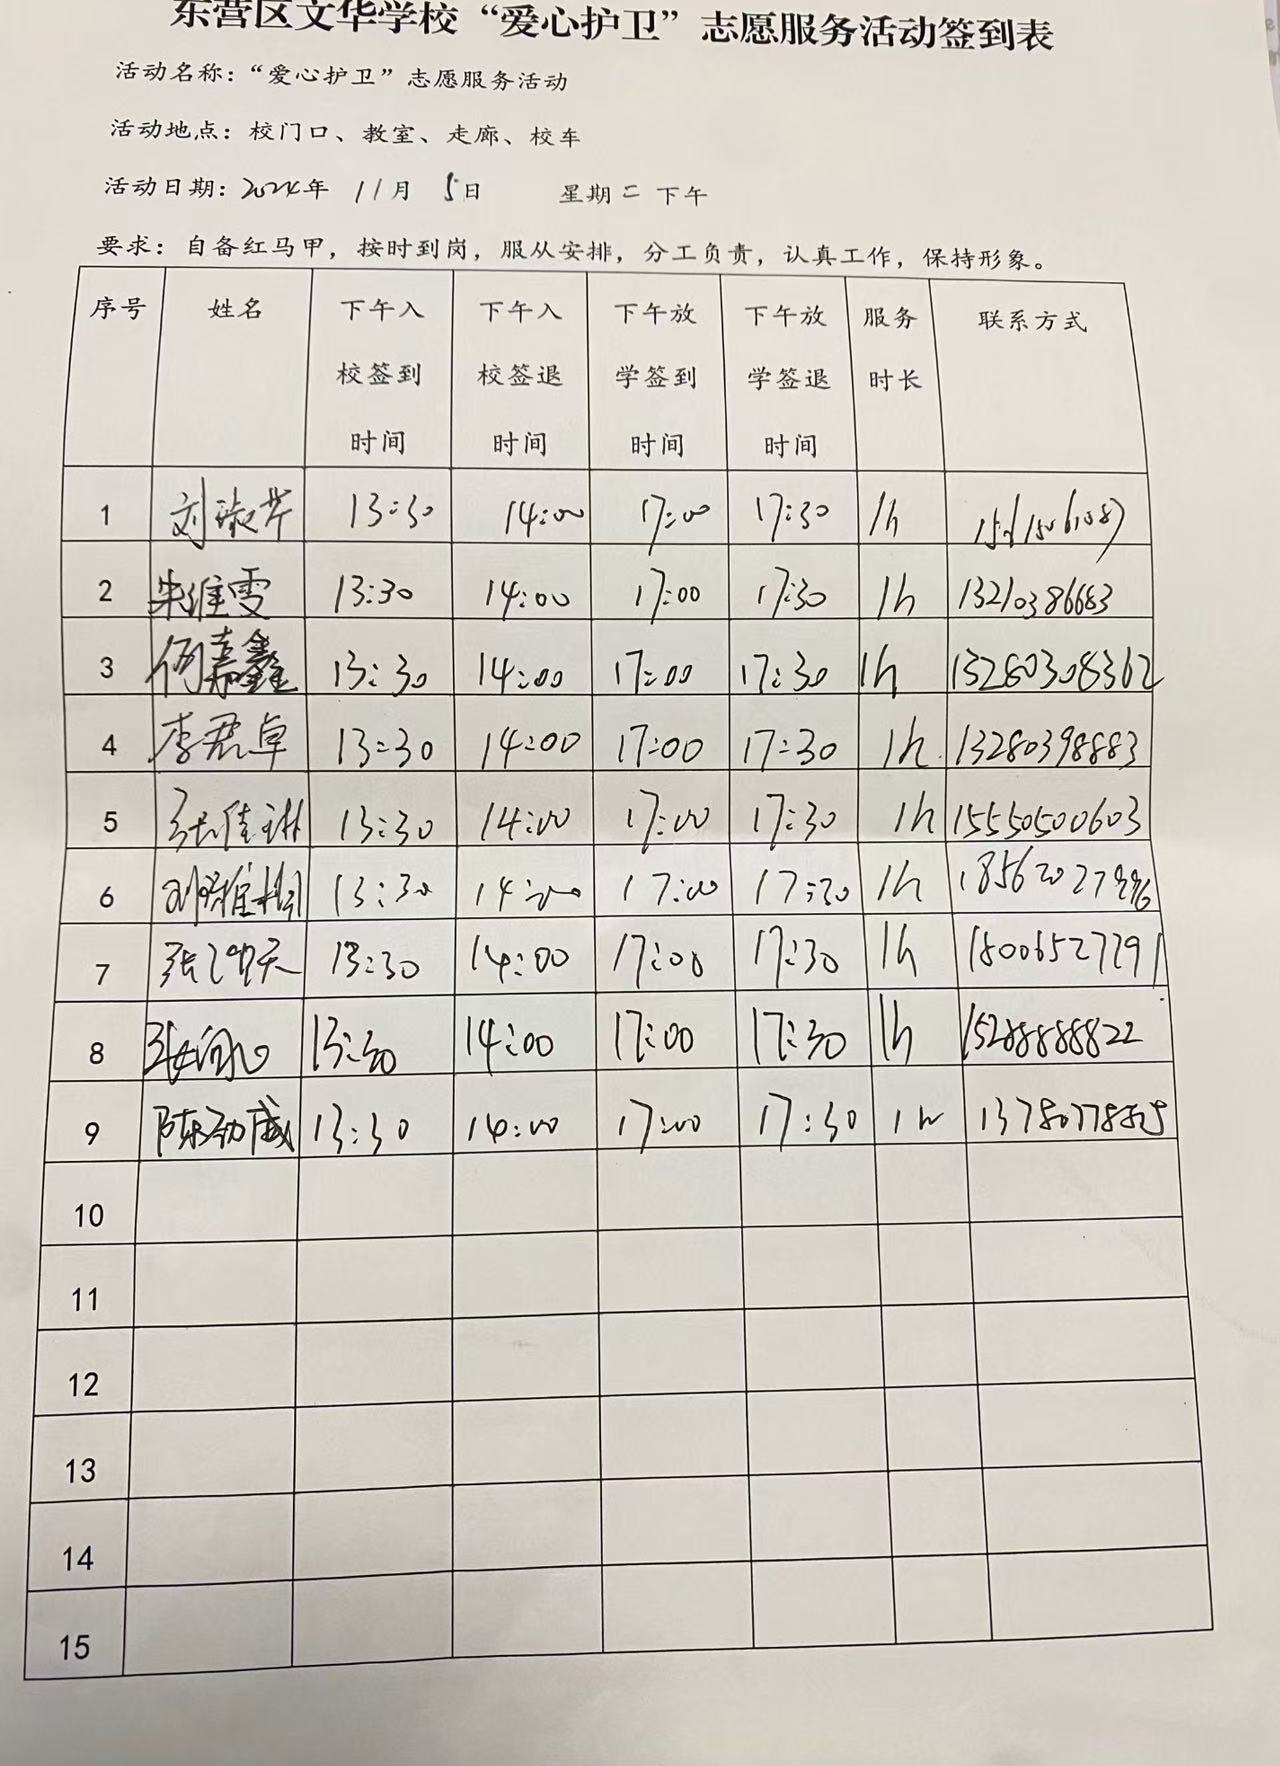 东营区文华学校“爱心护卫”志愿服务活动签到表
活动名称：“爱心护卫”志愿服务活动
活动地点：校门口、教室、走廊、校车
活动日期：2024年 11月 5日 星期二 下午
要求：自备红马甲，按时到岗，服从安排，分工负责，认真工作，保持形象。
序号 姓名 下午入校签到时间 下午入校签退时间 下午放学签到时间 下午放学签退时间 服务时长 联系方式
1 刘淑芹 13:30 14:00 17:00 17:30 1h
2 朱维雯 13:30 14:00 17:00 17:30 1h 13210386683
3 何嘉鑫 13:30 14:00 17:00 17:30 1h 13280308362
4 李君卓 13:30 14:00 17:00 17:30 1h 13280398883
5 张佳琳 13:30 14:00 17:00 17:30 1h 15550500603
6 13:30 14:00 17:00 17:30 1h
7 13:30 14:00 17:00 17:30 1h 18006527791
8 13:30 14:00 17:00 17:30 1h 15288888822
9 陈劲威 13:30 14:00 17:00 17:30 1h
10
11
12
13
14
15